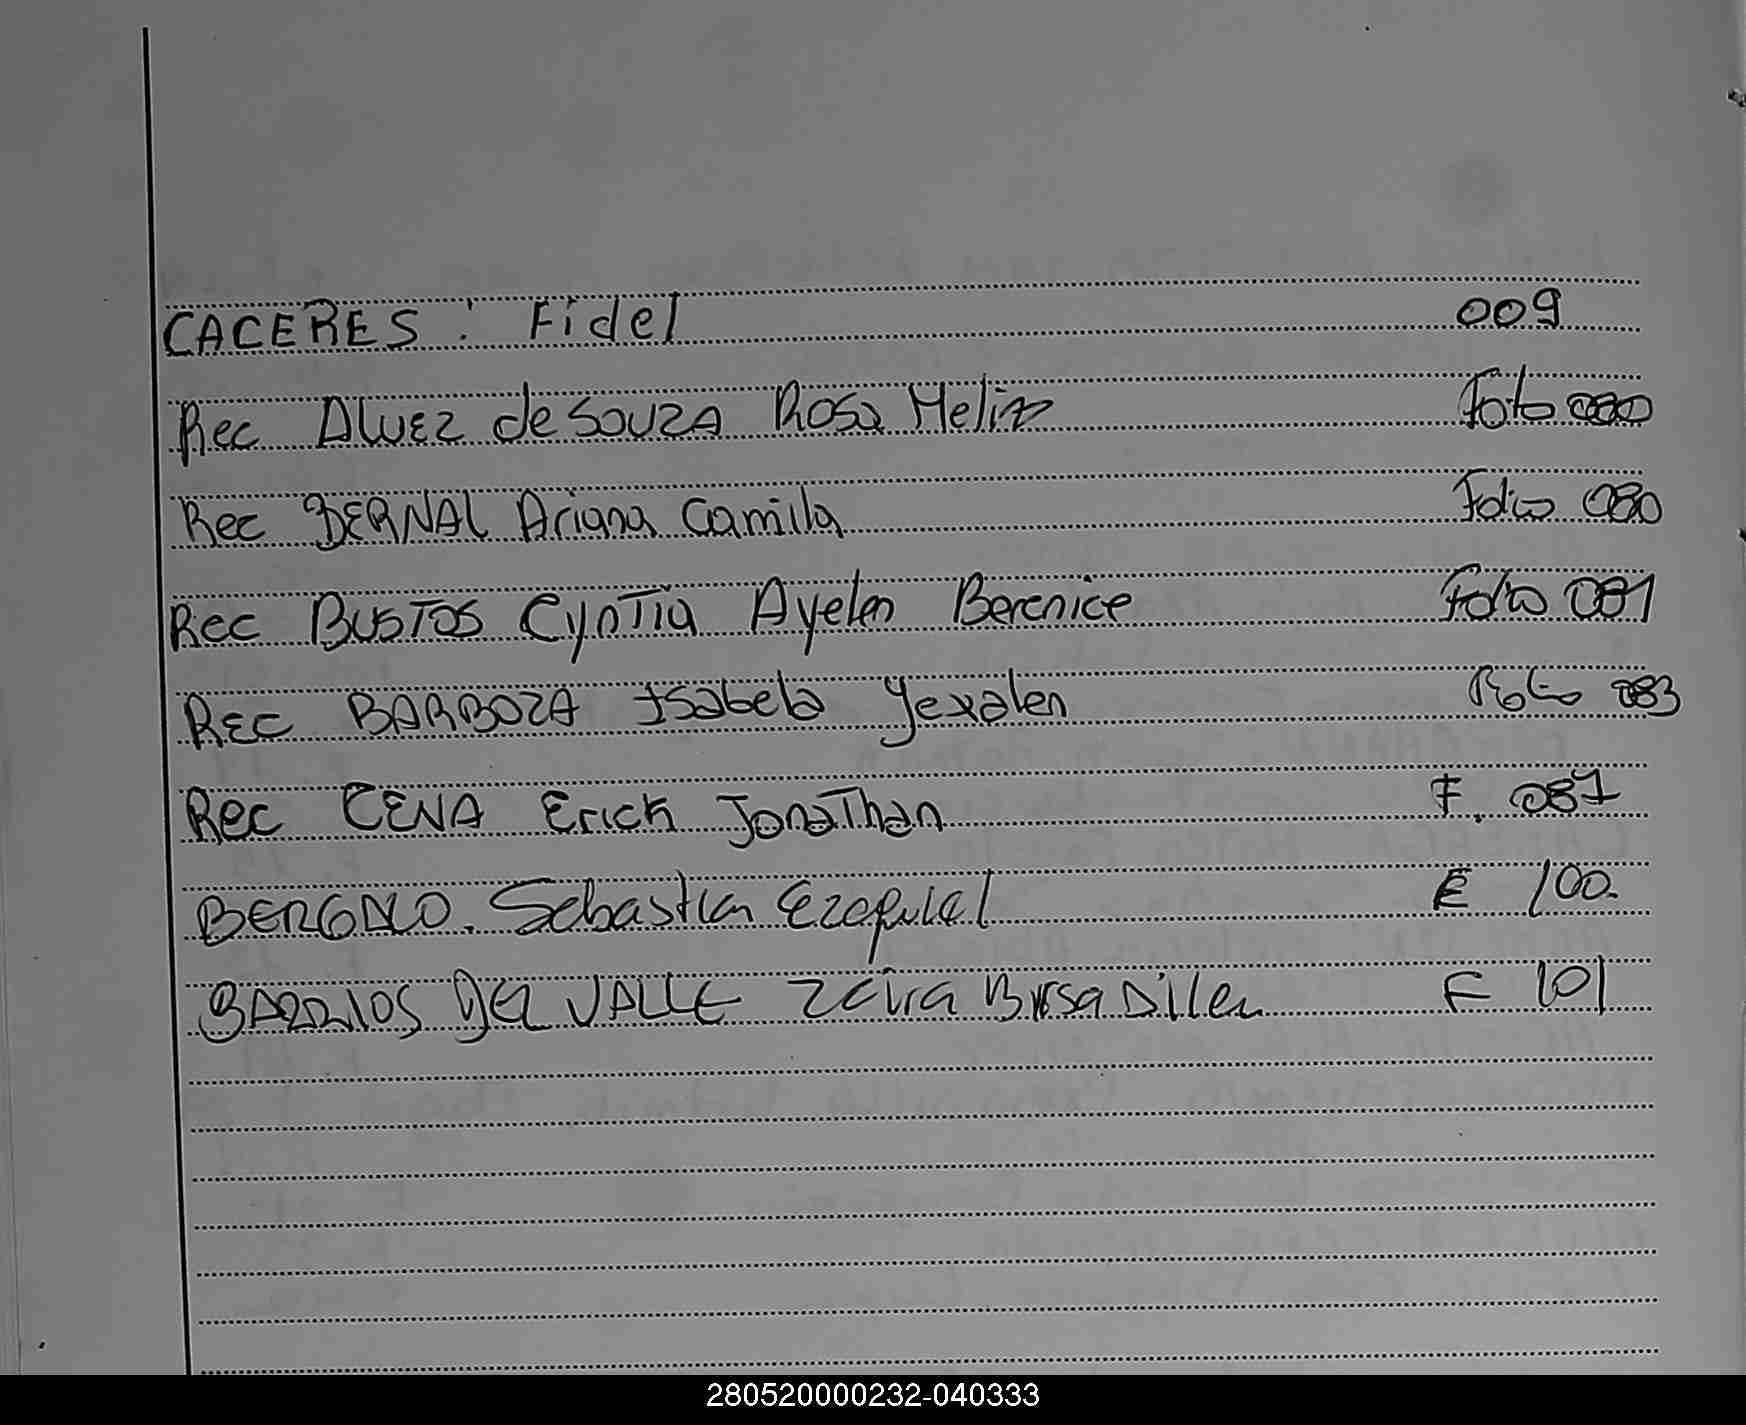 CACERES : Fidel 009
Rec ALVEZ de SOUZA Rosa Folio
Rec BERNAL Ariana Camila Folio 080
Rec BUSTOS CynTia Ayelen Berenice Folio 081
Rec BARBOZA Isabela Yexalen Folio 083
Rec CENA Erick JonaThan F. 087
Sebastian Ezequiel F 100.
BARRIOS DEL VALLE F 101
280520000232-040333